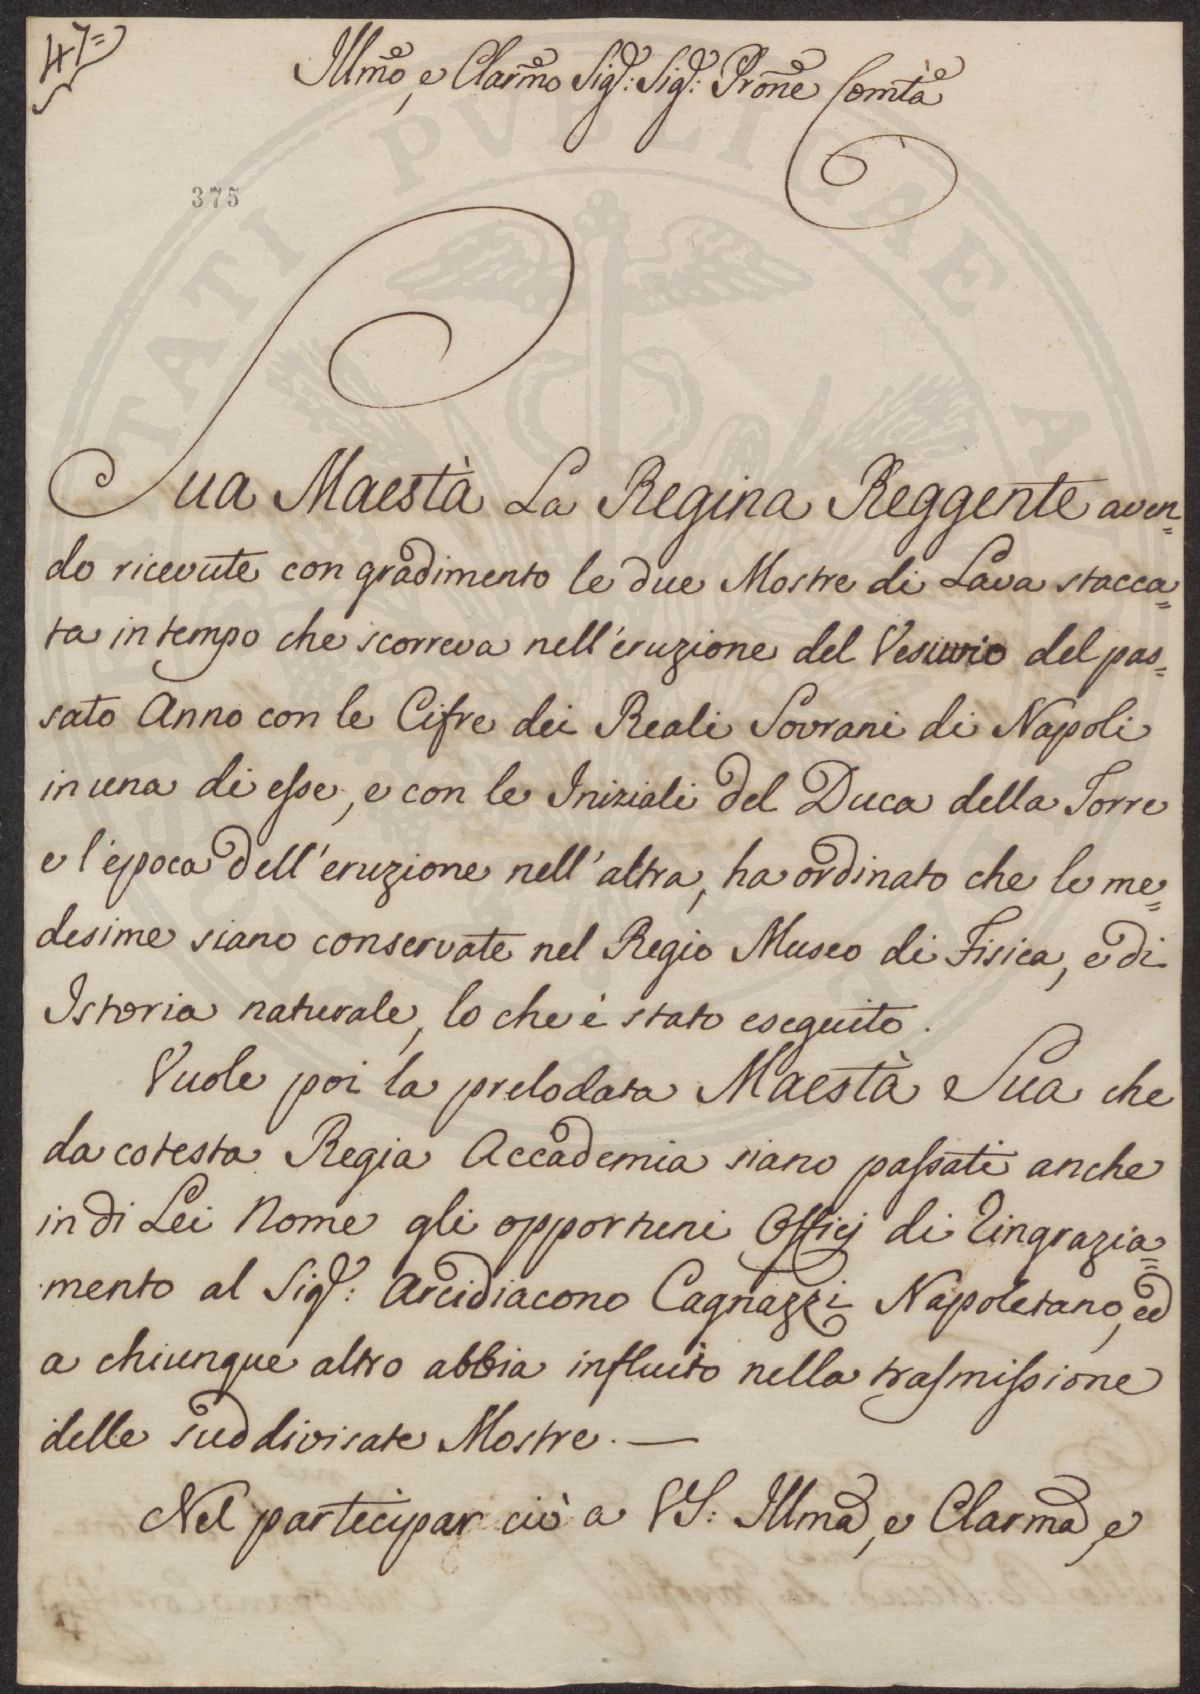 47=
Illmo, e Clarmo Sigr: Sigr: Prone Comta
375
Sua Maestà La Regina Reggente aven=
do ricevute con gradimento le due Mostre di Lava stacca=
ta in tempo che scorreva nell'eruzione del Vesuvio del pas=
sato Anno con le Cifre dei Reali Sovrani di Napoli
in una di esse, e con le Iniziali del Duca della Torre
e l'epoca dell'eruzione nell'altra, ha ordinato che le me=
desime siano conservate nel Regio Museo di Fisica, e di
Istoria naturale, lo che è stato eseguito.
Vuole poi la prelodata Maestà Sua che
da cotesta Regia Accademia siano passati anche
in di Lei Nome gli opportuni Officj di Ringrazia=
mento al Sigr: Arcidiacono Cagnazzi Napoletano, ed
a chiunque altro abbia influito nella trasmissione
delle suddivisate Mostre. —
Nel partecipar ciò a VS: Illma, e Clarma, e